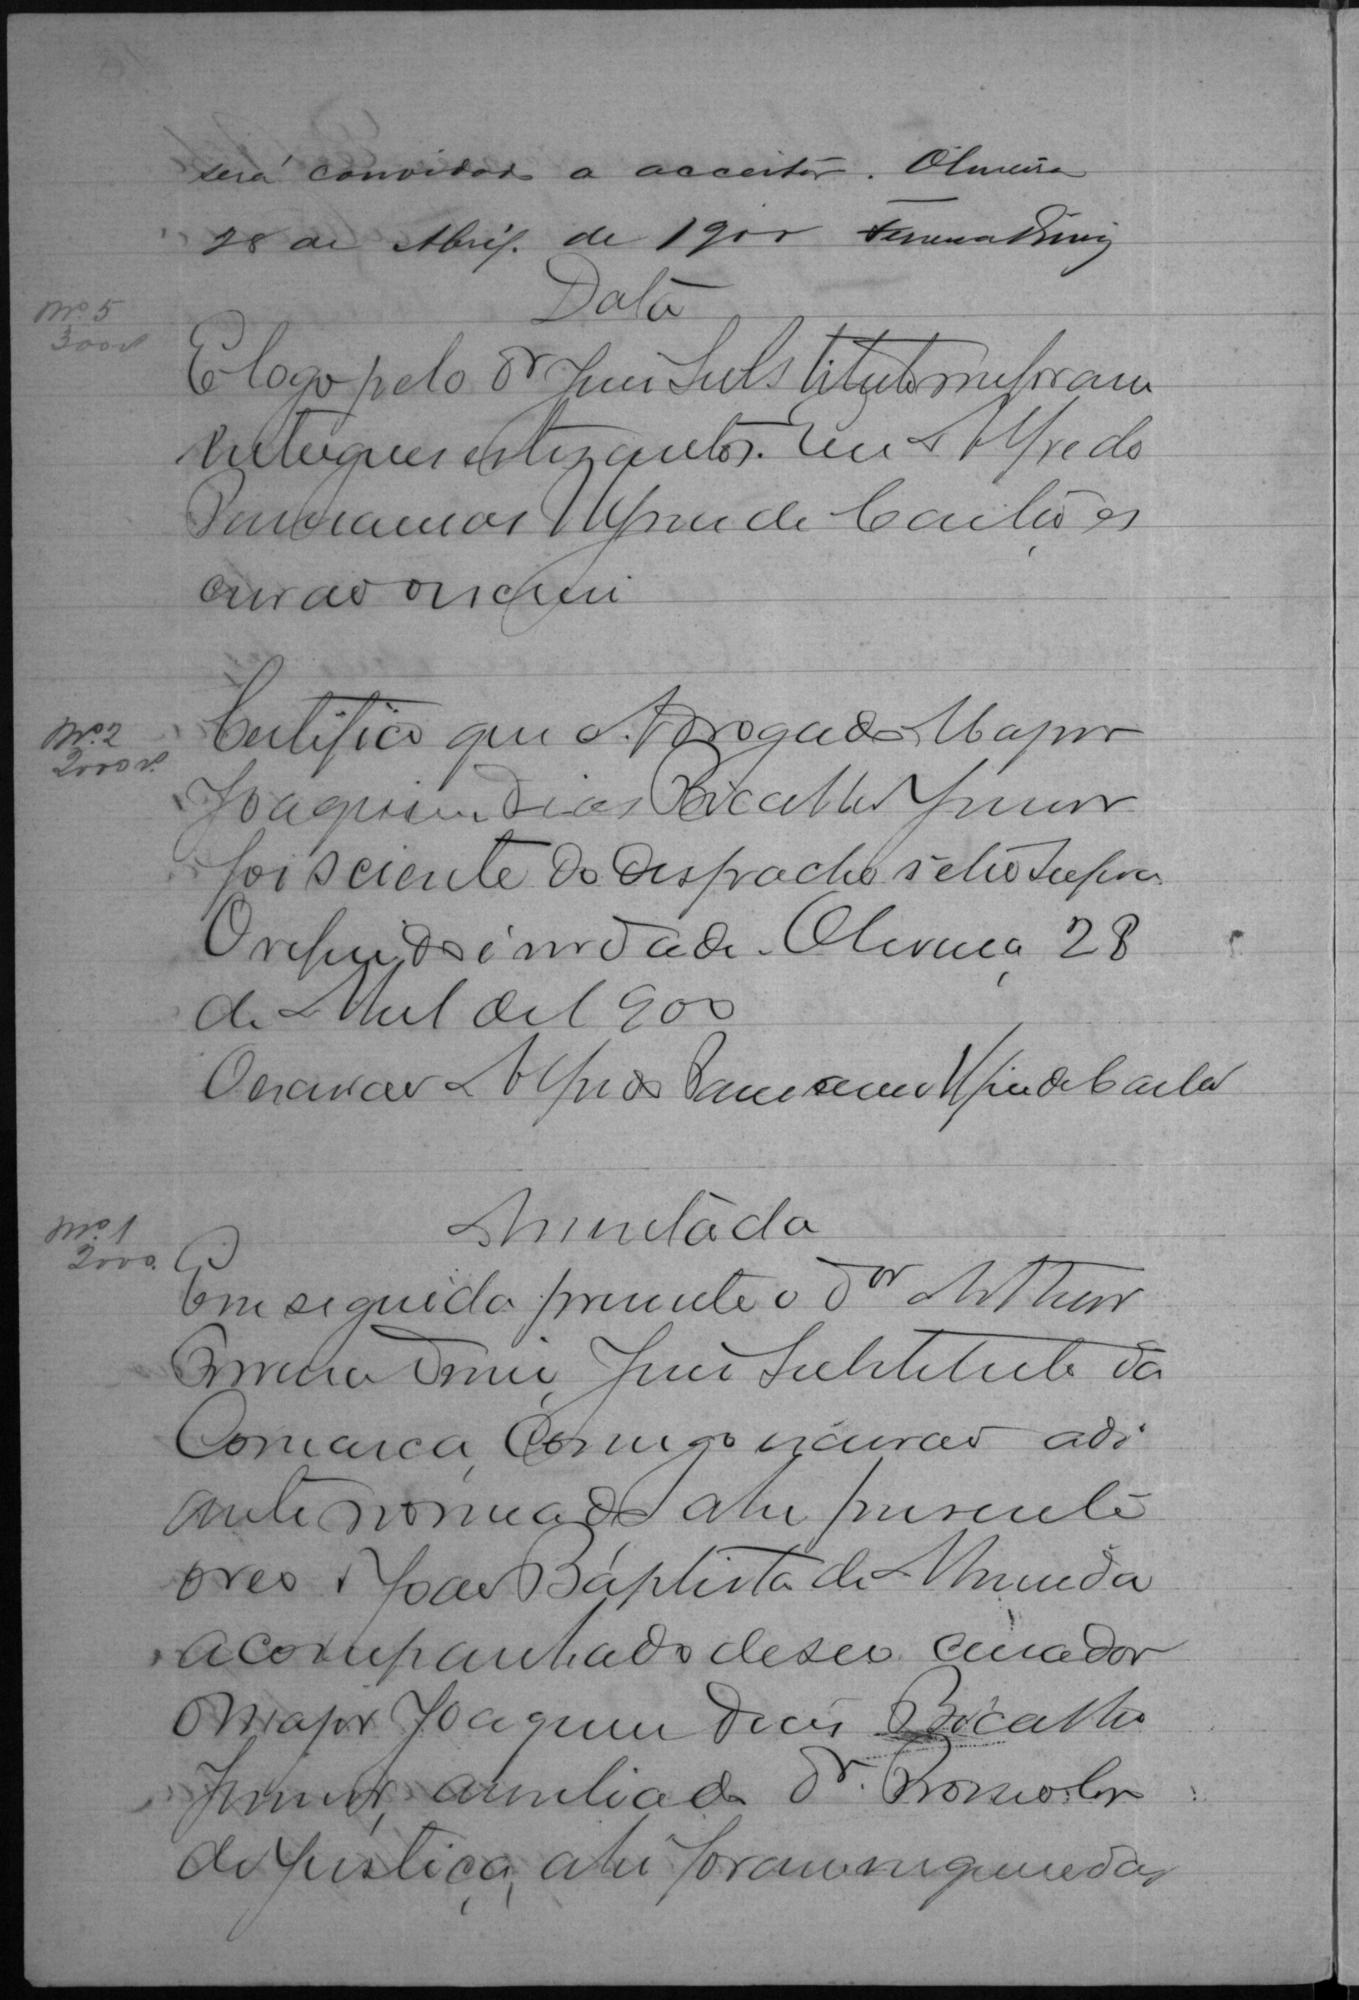 será convidado a acceitar. Oliveira
28 de Abril de 1900 Ferreira Diniz
Data
Nº 5
300 rs
E logo pelo Dr Juiz Substituto me foram
entregues estes autos. Eu Alfredo
de Castro es
crivão escrevi
Nº 2
2000 rs.
Certifico que o Advogado Major
Joaquim Dias Bicalho Junior
foi sciente do despacho retro supra
O referido é verdade. Oliveira, 28
de Abril de 1900
O escrivão Alfredo de Castro
Nº 1
2000.
Assentada
Em seguida presente o Dor Arthur
Ferreira Diniz, Juiz Substituto da
Comarca, Comigo escrivão adi
ante nomeado ahi presente
o reo João Baptista de Almeida
acompanhado de seo curador
o Major Joaquim Dias Bicalho
Junior, Dr. Promotor
de Justiça, ahi foram